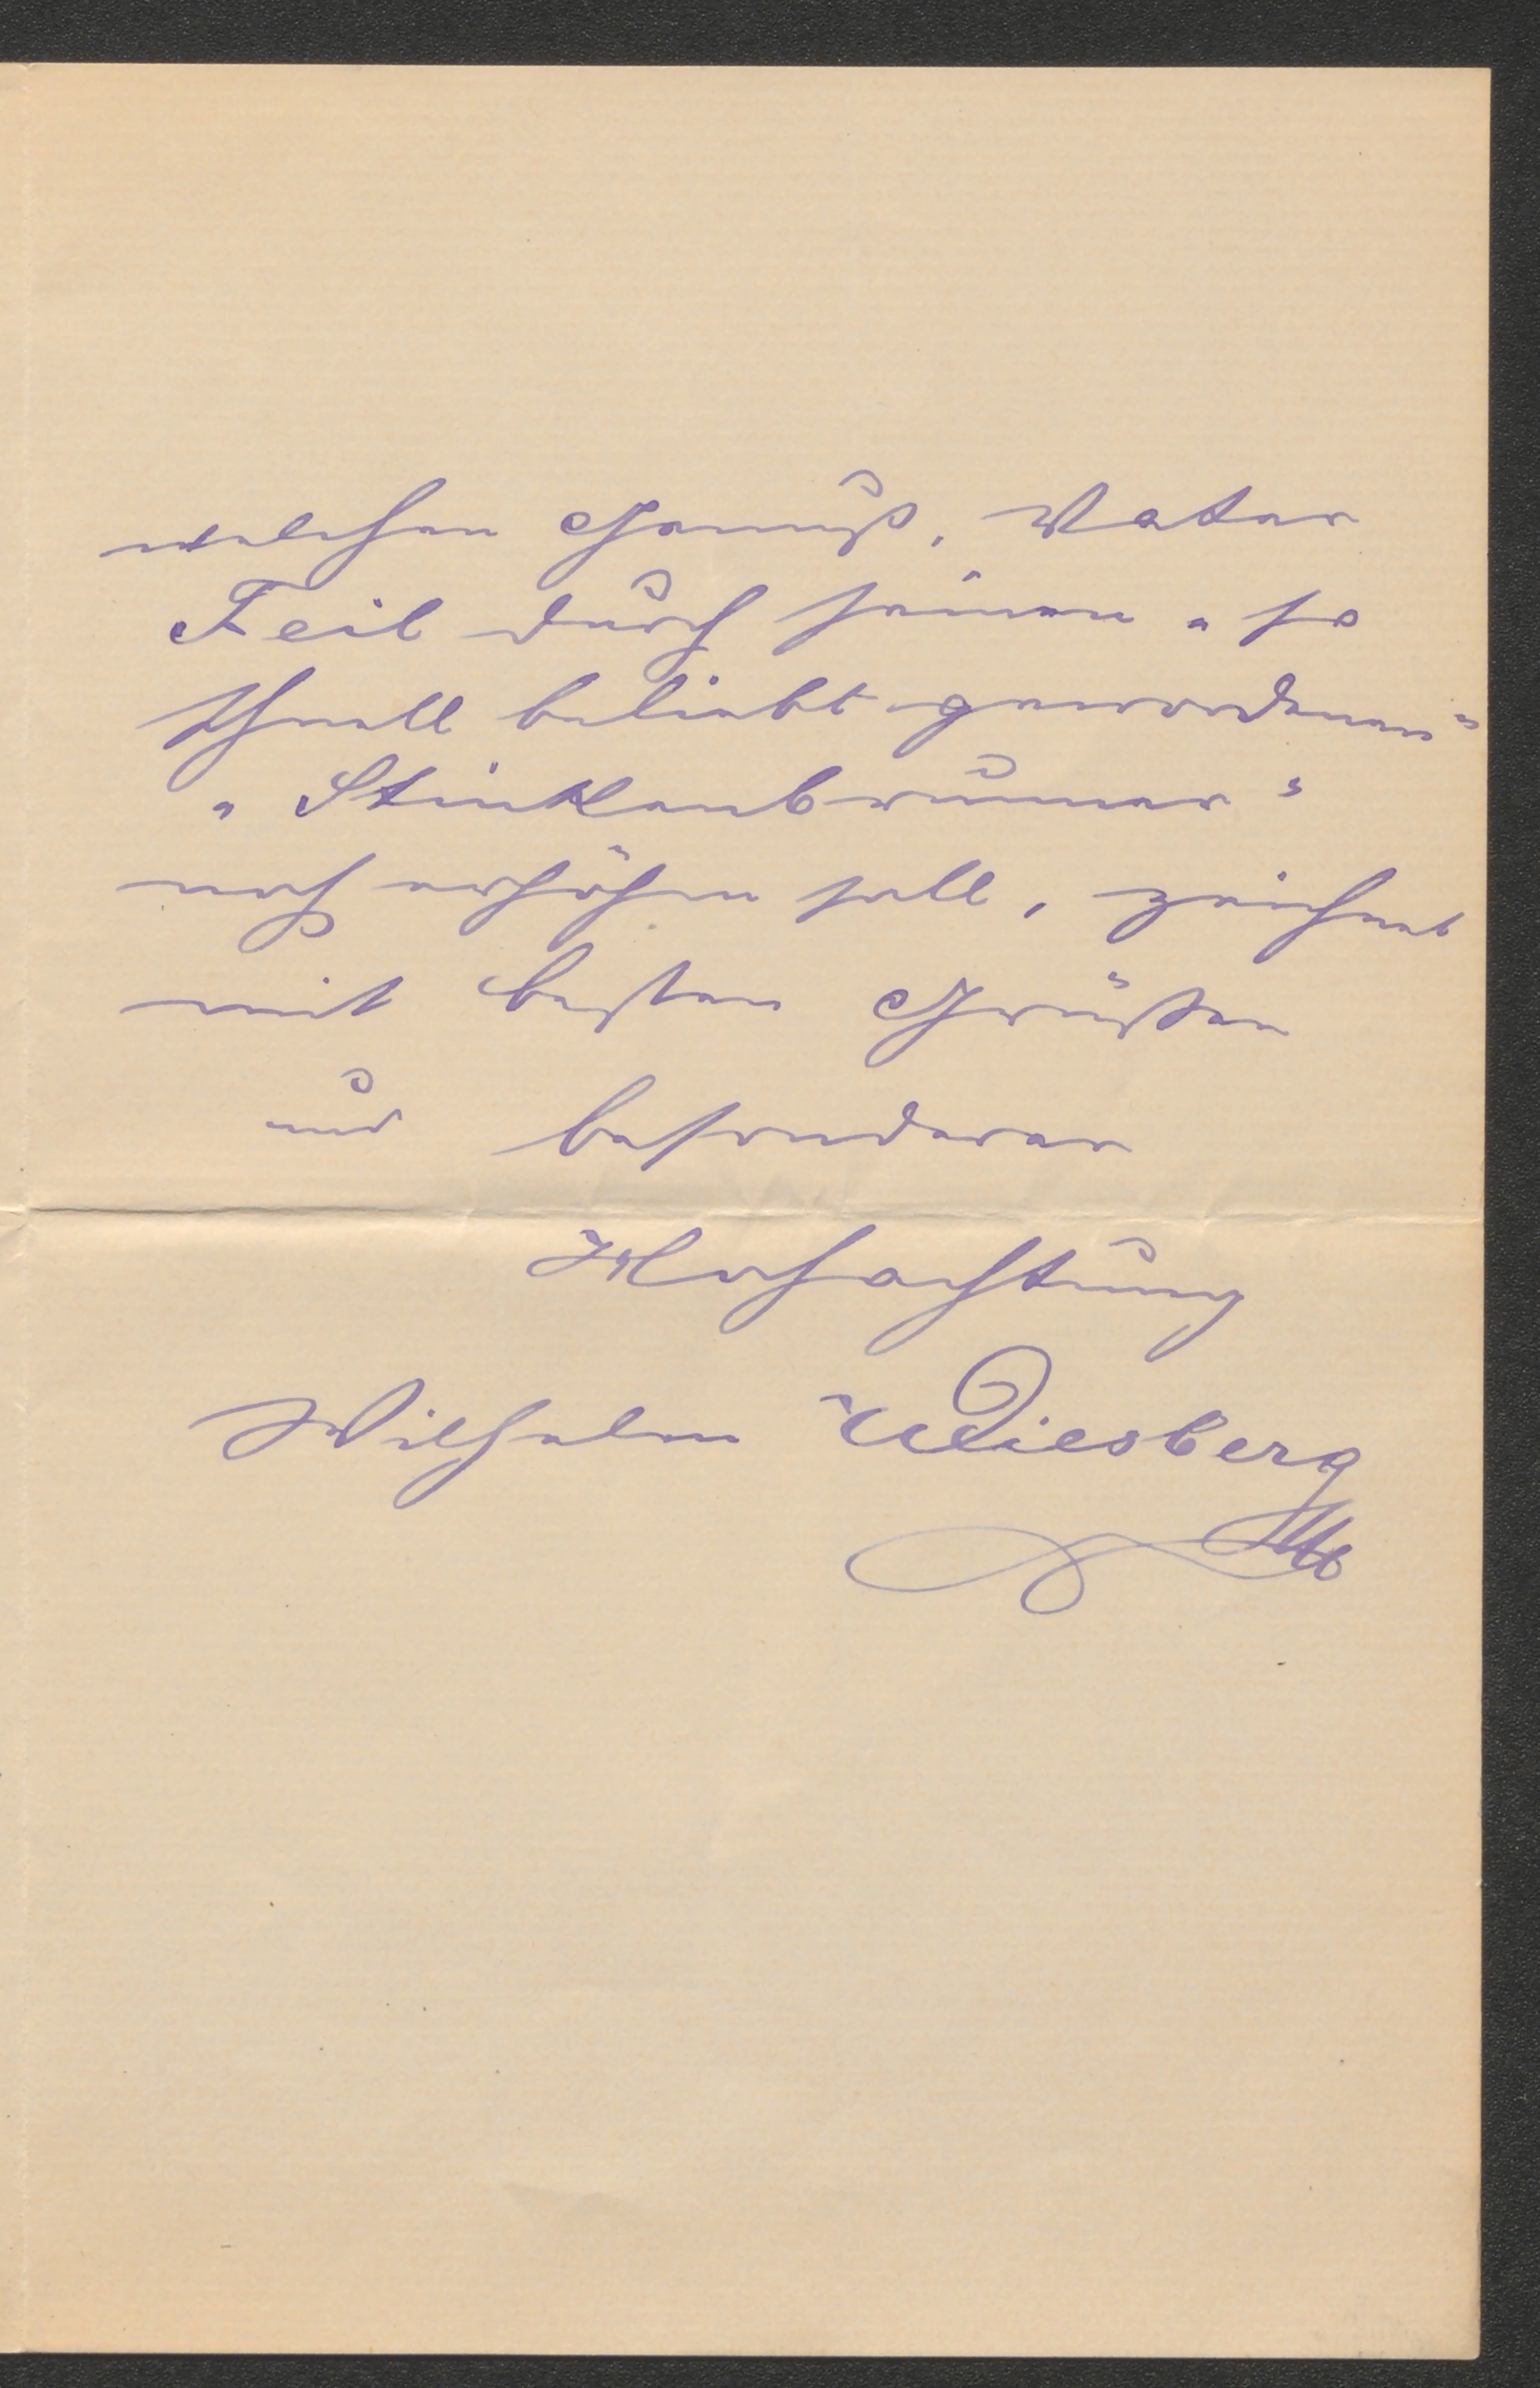 welchen Genuß, Vater
Feil durch seinen „so
schnell beliebt gewordenen“
„Stinkenbrunner“
noch erhöhen soll, zeichnet
mit besten Grüßen
und besonderer
Hochachtung
Wilhelm Wiesberg